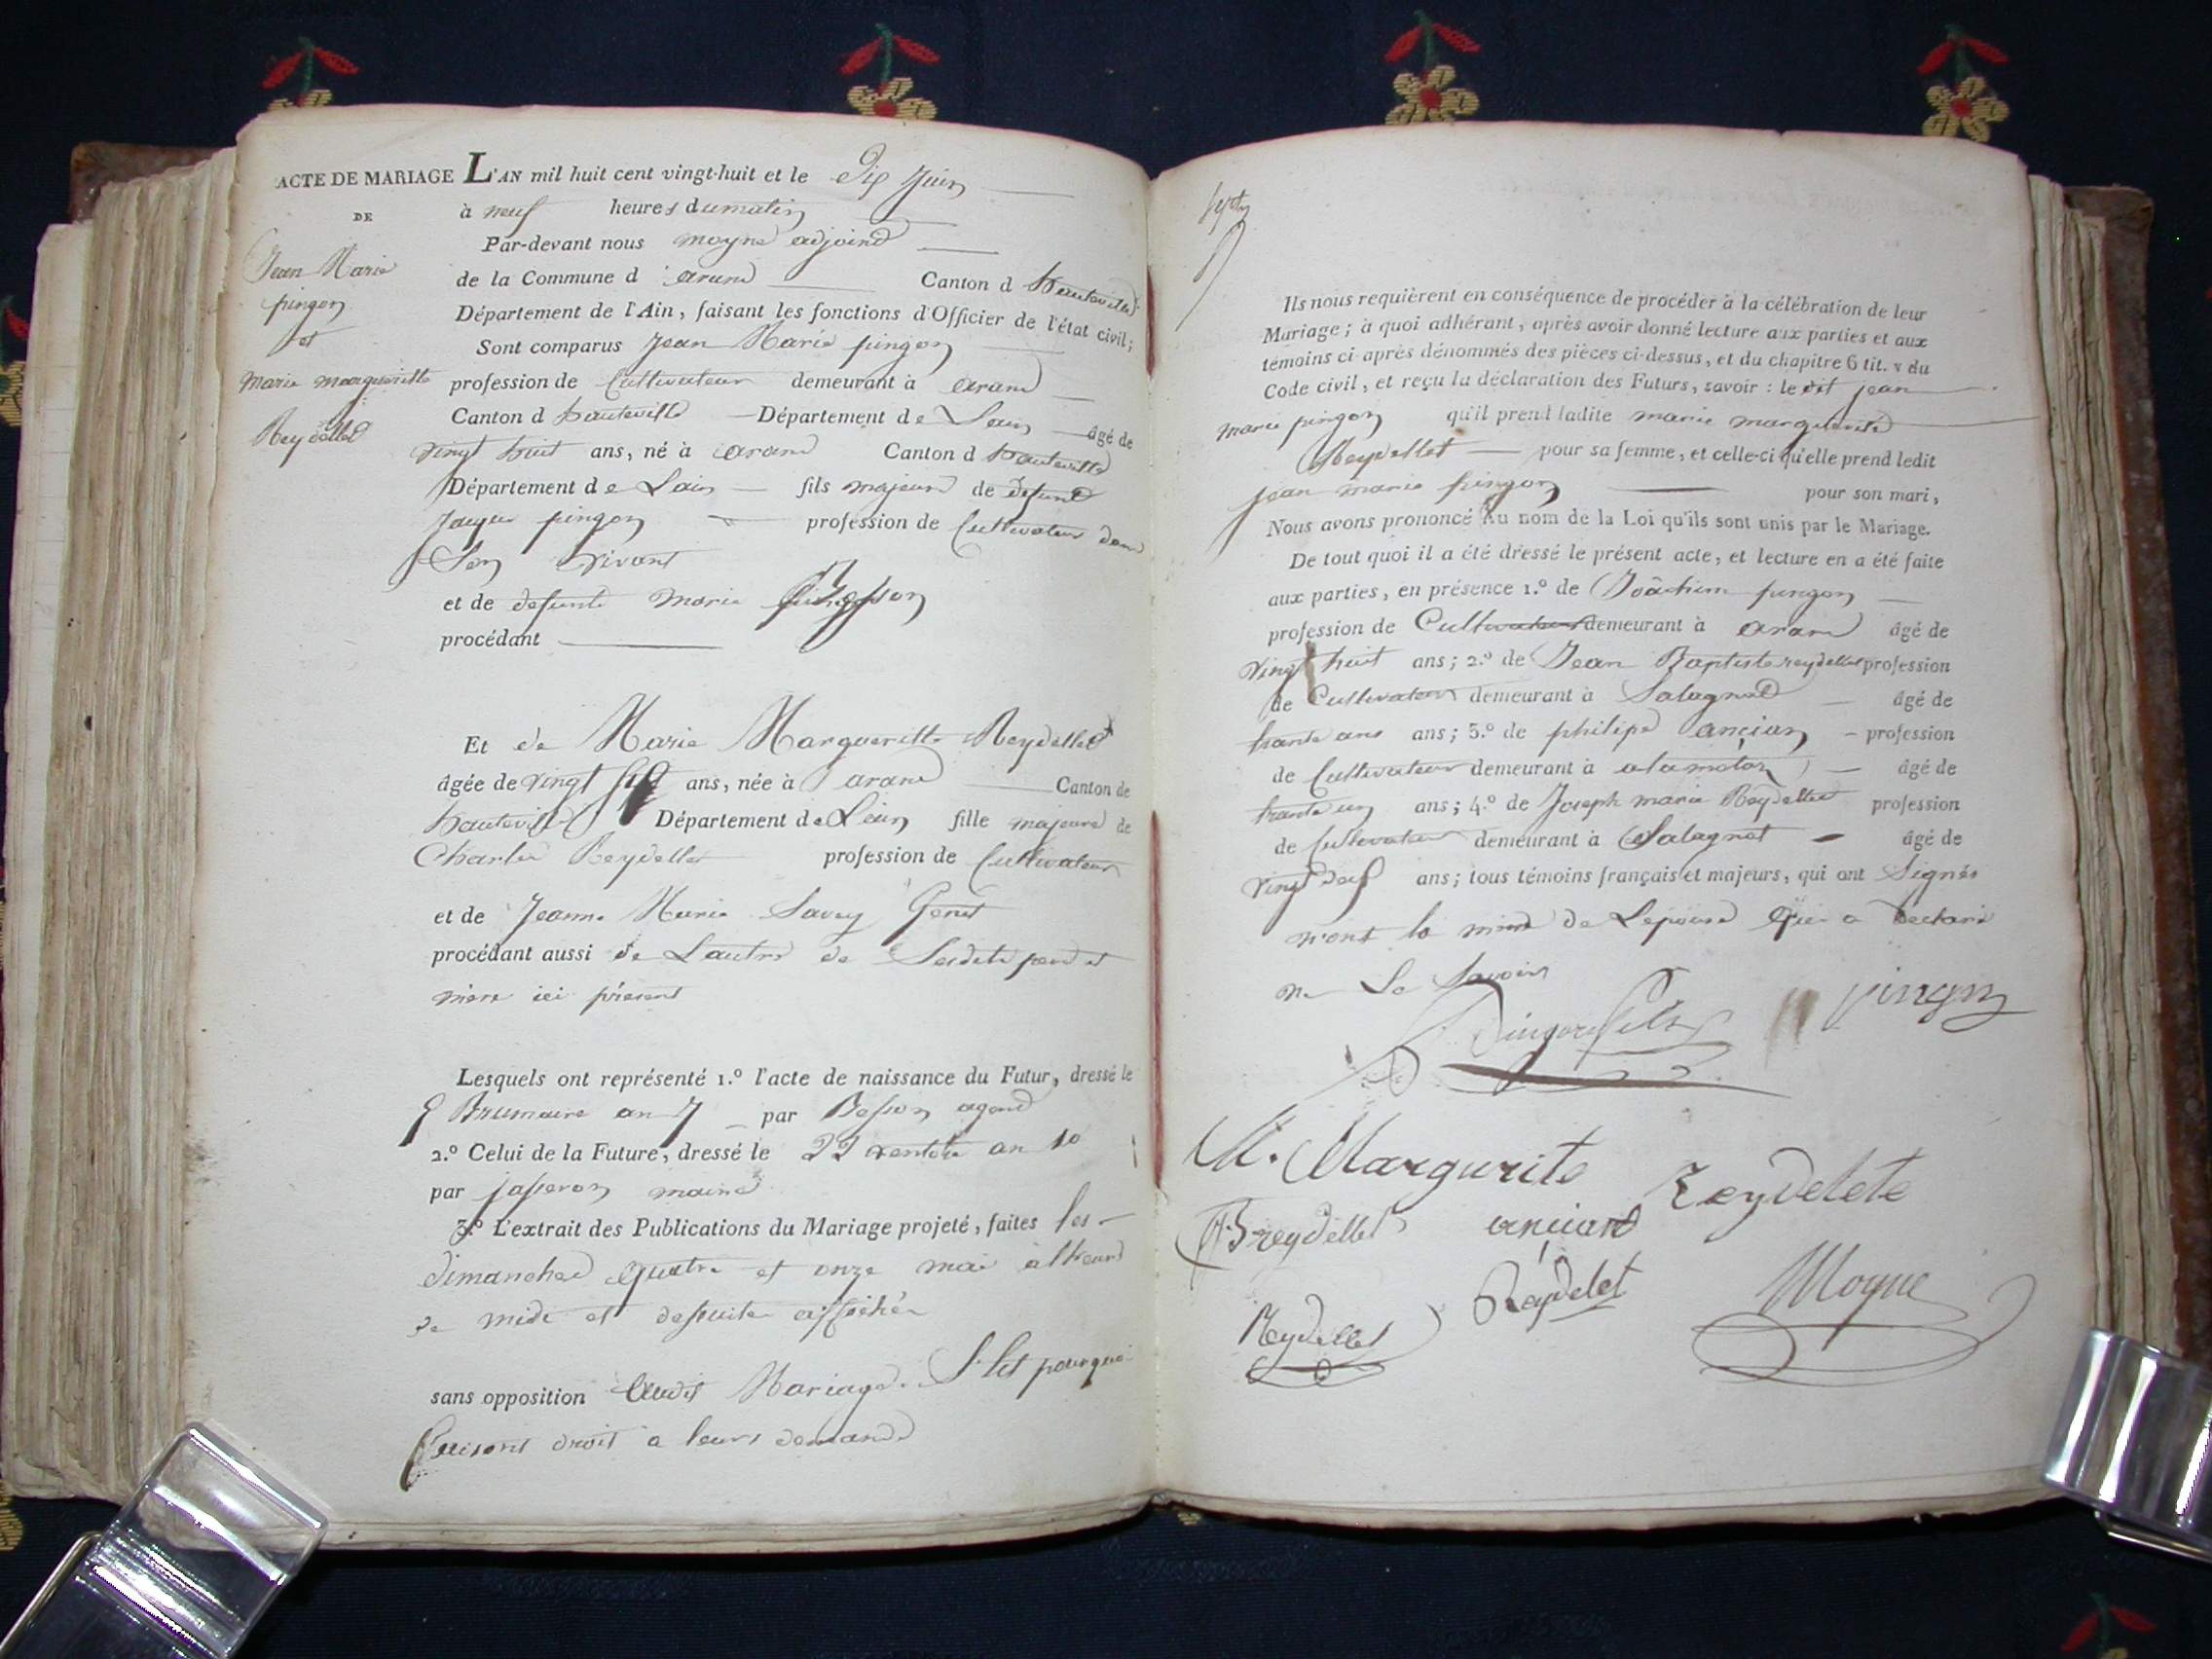 ACTE DE MARIAGE L'AN mil huit cent vingt-huit et le Dix Juin
DE
à neuf heures du matin
Par-devant nous moyne adjoind
Jean Marie
pingon
et
marie margueritte
Reydellet
de la Commune d arand Canton d hauteville
Département de l'Ain, faisant les fonctions d'Officier de l'état civil;
Sont comparus Jean Marie pingon
profession de Cultivateur demeurant à arand
Canton d hauteville Département de Lain âgé de
vingt huit ans, né à arand Canton d hauteville
Département de Lain fils majeur de defunt
Jaque pingon profession de Cultivateur dans
Son vivant
et de defunte marie Besson
procédant
Et de Marie Margueritte Reydellet
âgée de vingt ans, née à arand Canton de
hauteville Département de Lain fille majeure de
Charles Reydellet profession de Cultivateur
et de Jeanne Marie Savey Genet
procédant aussi de Lautre de pere et
mere ici présent
Lesquels ont représenté 1.º l'acte de naissance du Futur, dressé le
9 Brumaire an 7 par Besson agend
2.º Celui de la Future, dressé le 22 ventose an 10
par Jasseron maire
3.º L'extrait des Publications du Mariage projeté, faites les
dimanched quatre et onze mai a lheure
de midi et desuite affichée
sans opposition audit Mariage. Set pourquoi
faisons droit a leurs demande
Ils nous requièrent en conséquence de procéder à la célébration de leur
Mariage; à quoi adhérant, après avoir donné lecture aux parties et aux
témoins ci-après dénommés des pièces ci-dessus, et du chapitre 6 tit. v du
Code civil, et reçu la déclaration des Futurs, savoir: le dit jean
marie pingon qu'il prend ladite marie marguerite
Reydellet pour sa femme, et celle-ci qu'elle prend ledit
jean marie pingon pour son mari,
Nous avons prononcé Au nom de la Loi qu'ils sont unis par le Mariage.
De tout quoi il a été dressé le présent acte, et lecture en a été faite
aux parties, en présence 1.º de Joâchim pingon
profession de Cultivateur demeurant à arand âgé de
vingt huit ans; 2.º de Jean Baptiste reydellet profession
de Cultivateur demeurant à Salagnat âgé de
trante ans ans; 3.º de philipe ancian profession
de Cultivateur demeurant à alamotan âgé de
trante un ans; 4.º de Joseph marie Reydellet profession
de Cultivateur demeurant à Salagnat âgé de
vingt ans; tous témoins français et majeurs, qui ont Signés
de Lepouse qui a declaré
ne Le Savoir
pingon fils pingon
M. Margurite Reydelete
JB reydellet anciant
Reydelet
Reydellet Moyne